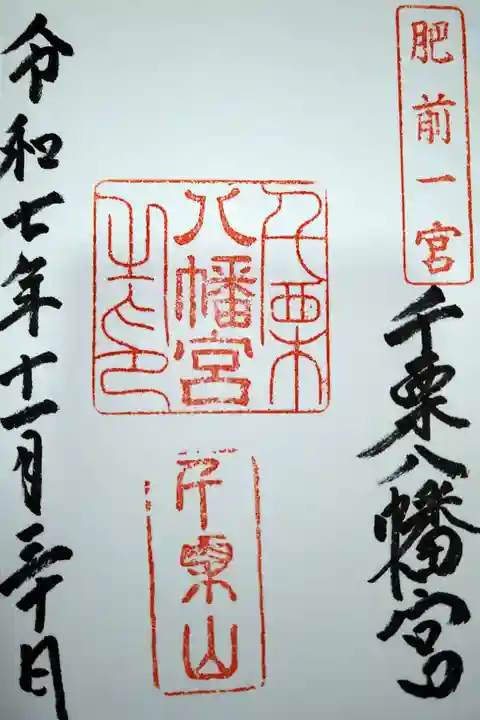 肥前一宮
千栗八幡宮
千栗八幡宮之印
千栗山
令和七年十一月三十日